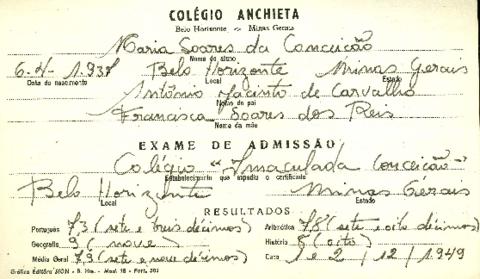 COLÉGIO ANCHIETA
Belo Horizonte - Minas Gerais
Maria Soares da Conceicão
Nome do aluno
6-4-1.937 Belo Horizonte Minas Gerais
Data do nascimento Local Estado
Antônio Jacinto de Carvalho
Nome do pai
Francisca Soares dos Reis
Nome da mãe
EXAME DE ADMISSÃO
Colégio "Imaculada Conceicão"
Estabelecimento que expediu o certificado
Belo Horizonte Minas Gerais
Local Estado
RESULTADOS
Português 7,3 (sete e três décimos) Aritmética 7,8 (sete e oito décimos)
Geografia 9 (nove) História 8 (oito)
Média Geral 7,9 (sete e nove décimos) Data 1 e 2 / 12 / 1949
Gráfica Editôra SION - B. Hte. - Mod. 18 - Port.